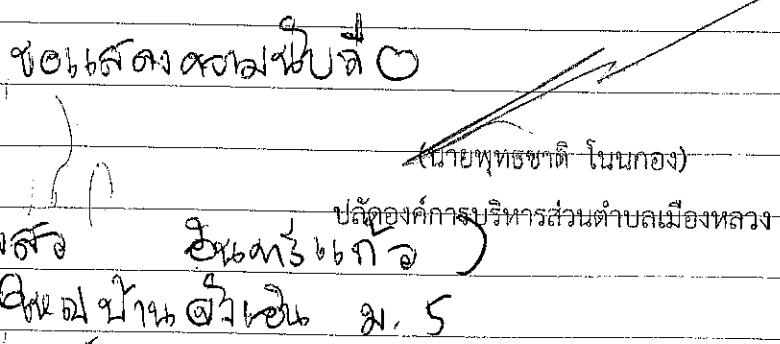 ขอแสดงความนับถือ
(นายพุทธชาติ โนนกอง)
ปลัดองค์การบริหารส่วนตำบลเมืองหลวง
อินทร์แก้ว)
บ้าน ม. 5